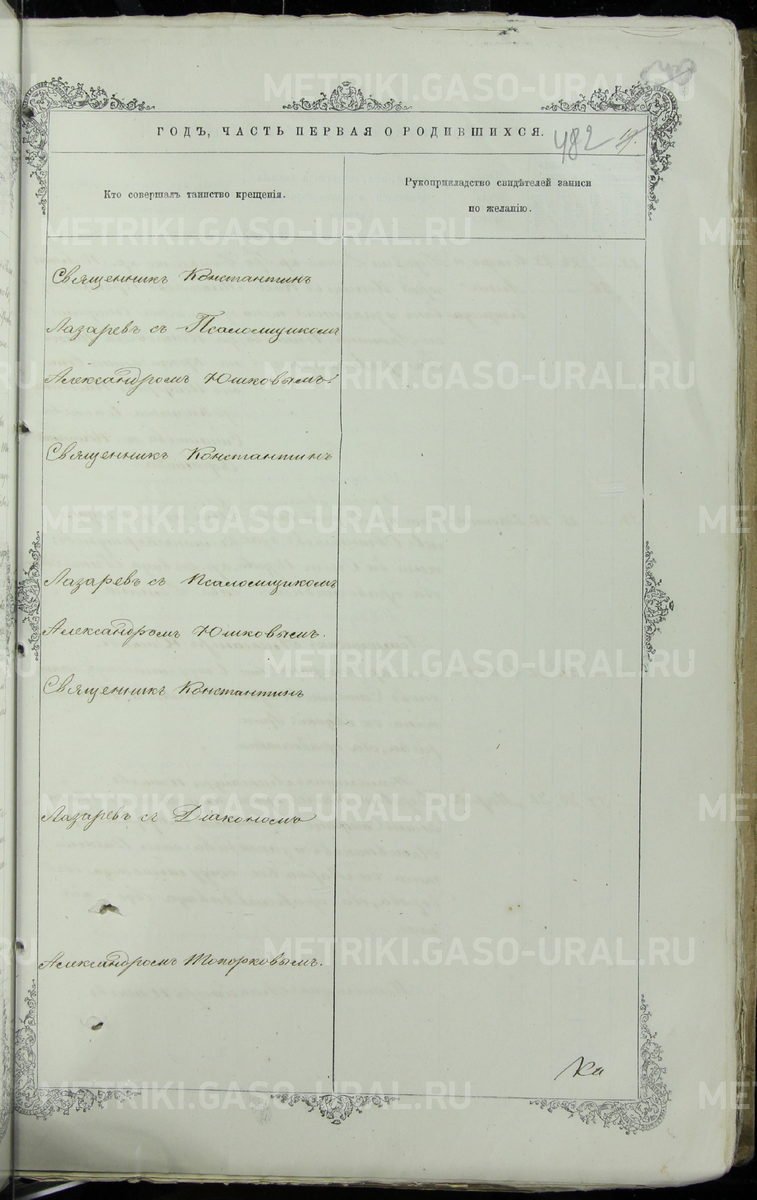 METRIKI.GASO-URAL.RU
ГОДЪ, ЧАСТЬ ПЕРВАЯ О РОДИВШИХСЯ.
482
Кто совершалъ таинство крещенія.
Рукоприкладство свидѣтелей записи
по желанію.
Священникъ Константинъ
Лазаревъ съ Псаломщикомъ
Александромъ Юшковымъ.
Священникъ Константинъ
Лазаревъ съ Псаломщикомъ
Александромъ Юшковымъ.
Священникъ Константинъ
Лазаревъ съ Діакономъ
Александромъ Топорковымъ.